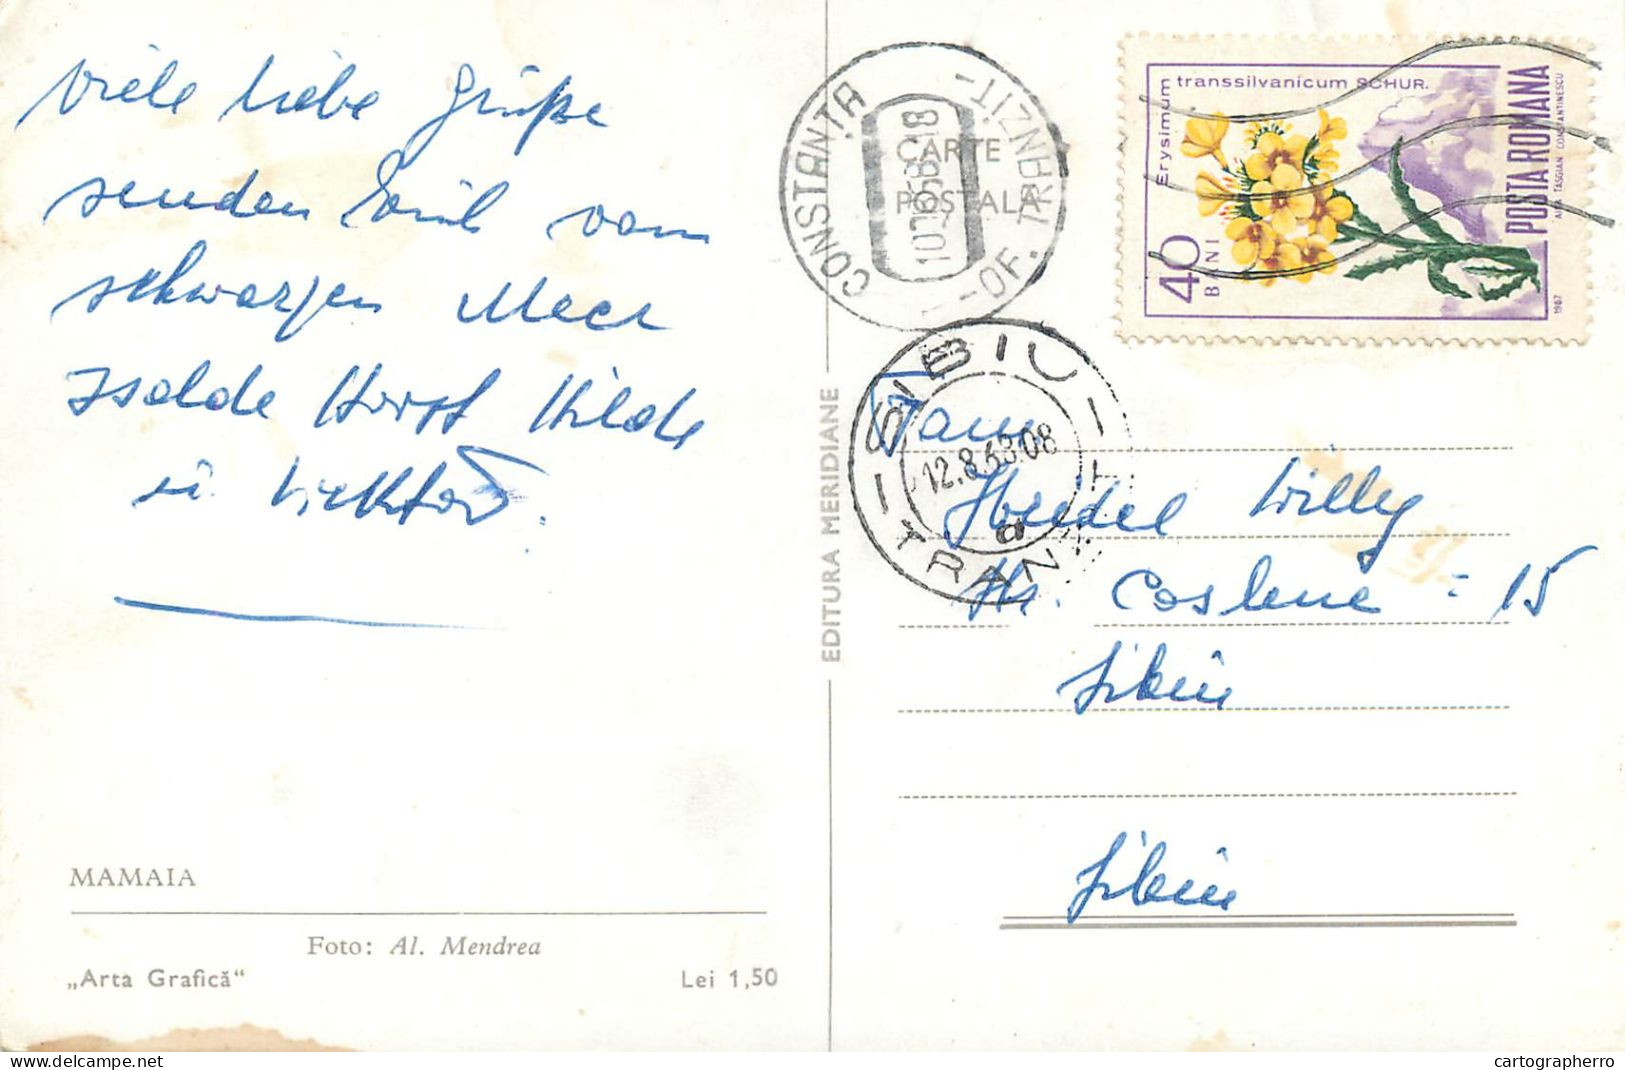 Viele liebe Grüße
senden Euch vom
schwarzen Meer
Isolde Horst Hilde
u.
MAMAIA
Foto: Al. Mendrea
„Arta Grafică“
Lei 1,50
EDITURA MERIDIANE
CARTE
POȘTALA
CONSTANȚA
-OF. TRANZIT-
10.768-18
SIBIU
TRANZIT
12.8.68.08
a
Erysimum transsilvanicum SCHUR.
40
BANI
POSTA ROMANA
AIDA TASGIAN CONSTANTINESCU
1967
Fam.
Willy
Str. 15
Sibiu
Sibiu
cartographerro